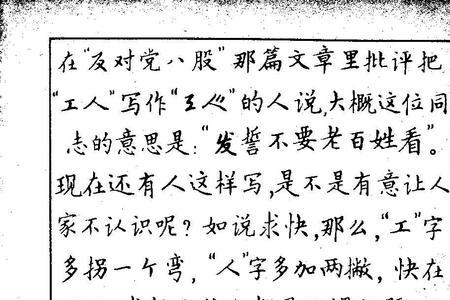 在“反对党八股”那篇文章里批评把
“工人”写作“𢀚𠆤”的人说,大概这位同
志的意思是:“发誓不要老百姓看”。
现在还有人这样写,是不是有意让人
家不认识呢?如说求快,那么,“工”字
多拐一个弯,“人”字多加两撇,快在